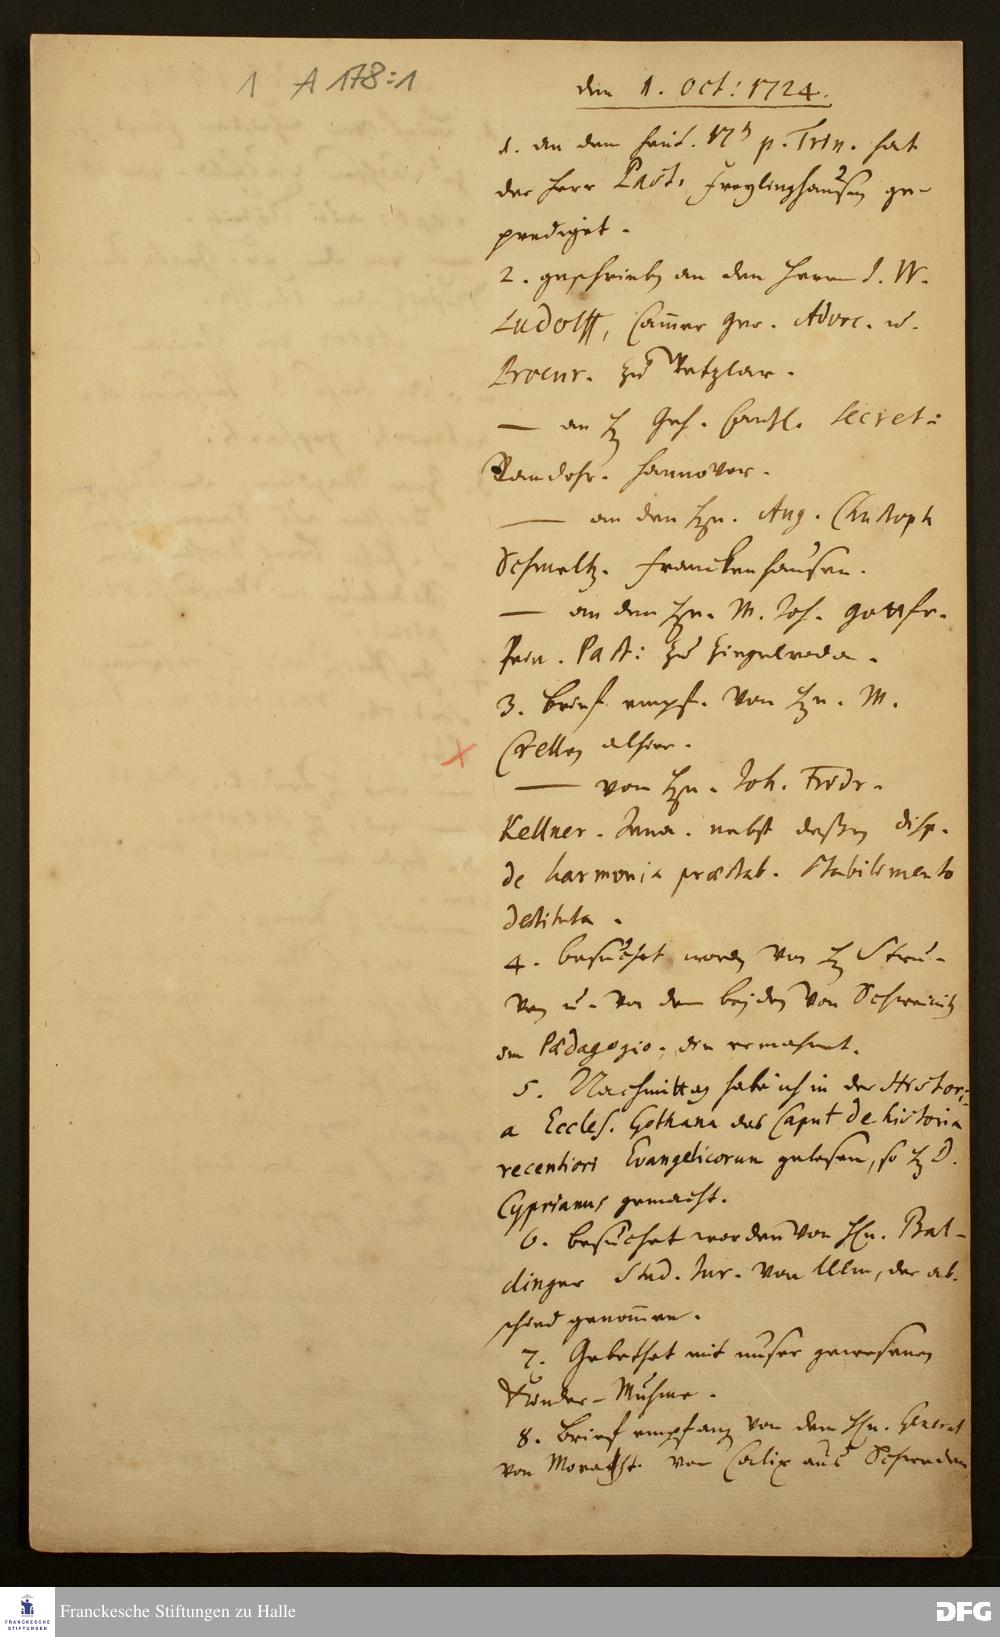 1 A 178:1
den 1. Oct: 1724.
1. an dem heut. 17 p. Trin. hat
der Herr Past. Freylinghausen ge-
prediget.
2. geschrieben an den Herrn J. W.
Ludolff, Cammer Ger. Advoc. u.
Procur. zu Wetzlar.
— an H Geh. Cantzl. Secret:
Ramdohr. Hannover.
— an den Hrn. Aug. Christoph
Schmeltz. Franckenhausen.
— an den Hrn. M. Joh. Gottfr.
Past: zu Ziegelroda.
3. Brief empf. von Hrn. M.
Crellen alhier.
— von Hrn. Joh. Fridr.
Kellner. Jena. nebst deßen disp.
de harmonia præstab. stabilimento
destituta.
4. besuchet worden von H Stru-
ven u. von den beyden von Schweinitz
im Pædagogio, die ermahnet.
5. Nachmittag habe ich in der Histori-
a Eccles. Gothana das Caput de historia
recentiori Evangelicorum gelesen, so H D.
Cyprianus gemacht.
6. besuchet worden von Hn. Bal-
dinger Stud. Jur. von Ulm, der ab-
schied genommen.
7. Gebethet mit unser gewesenen
Kinder-Muhme.
8. Brief empfang von dem Hn. General
von Calix aus Schweden
Franckesche Stiftungen zu Halle
FRANCKESCHE
STIFTUNGEN
DFG